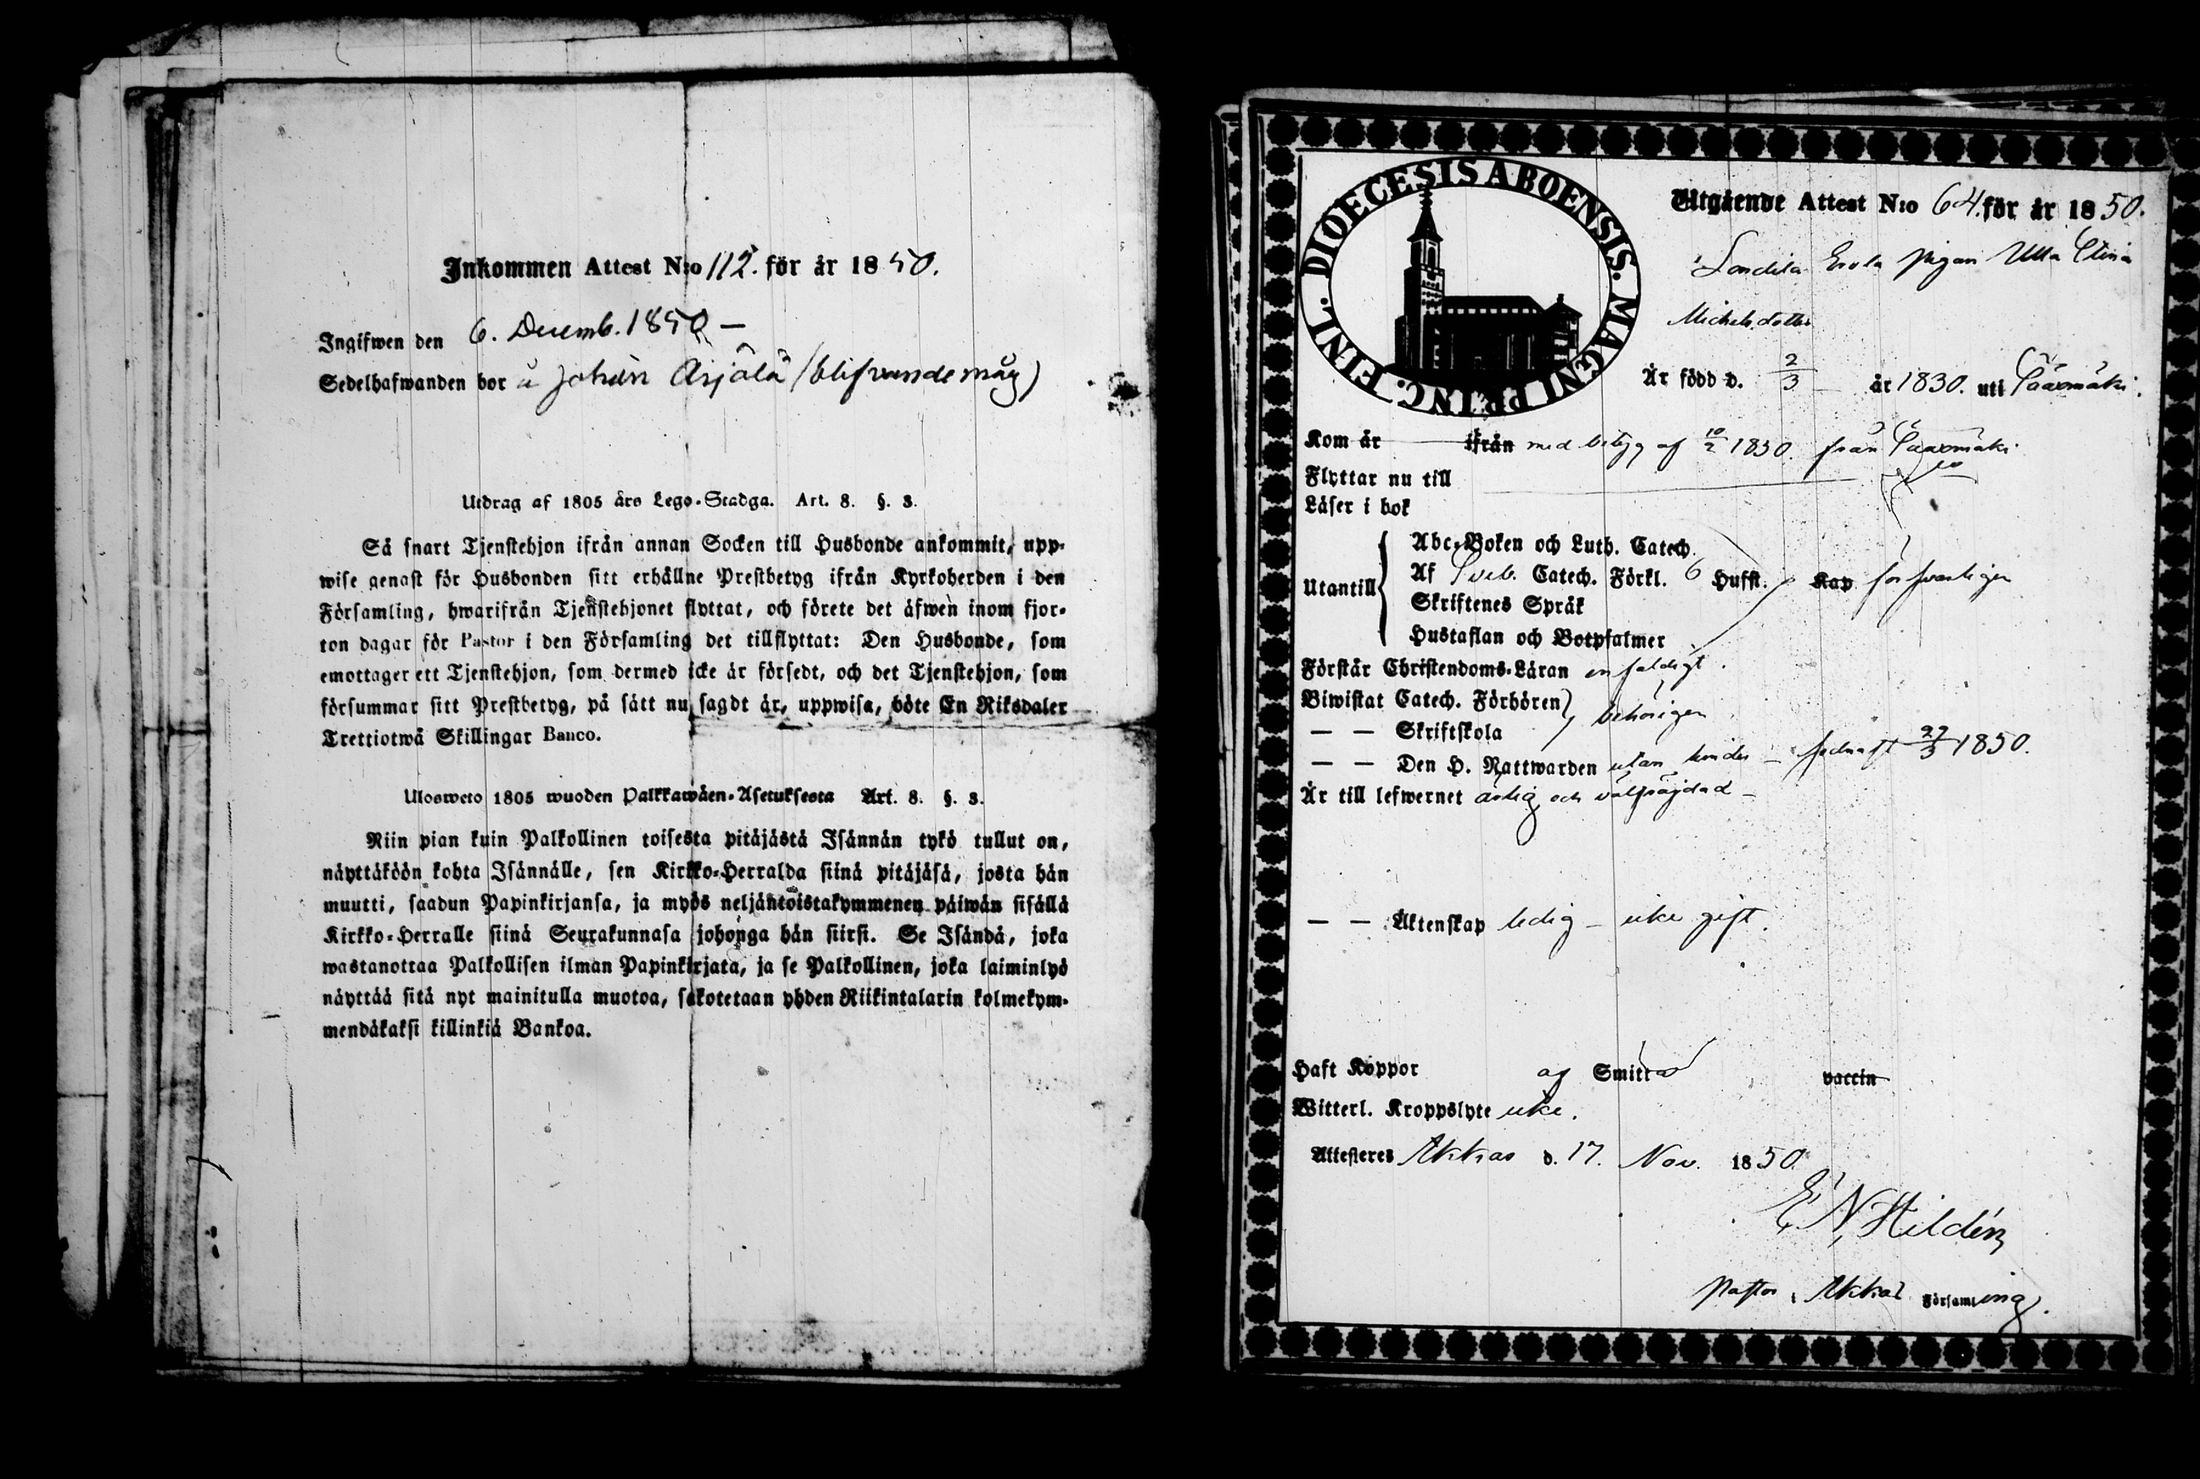 Inkommen Attest N:o 112. för år 1850.
Ingifwen den 6. Decemb. 1850 —
Sedelhafwanden bor å Johan Arjälä (blifvande måg)
Utdrag af 1805 års Lego-Stadga. Art. 8. §. 3.
Så snart Tjenstehjon ifrån annan Socken till Husbonde ankommit, upp-
wise genast för Husbonden sitt erhållne Prestbetyg ifrån Kyrkoherden i den
Församling, hwarifrån Tjenstehjonet flyttat, och förete det äfwen inom fjor-
ton dagar för Pastor i den Församling det tillflyttat: Den Husbonde, som
emottager ett Tjenstehjon, som dermed icke är försedt, och det Tjenstehjon, som
försummar sitt Prestbetyg, på sätt nu sagdt är, uppwisa, böte En Riksdaler
Trettiotwå Skillingar Banco.
Ulosweto 1805 wuoden Palkkawäen-Asetuksesta Art. 8. §. 3.
Niin pian kuin Palkollinen toisesta pitäjästä Isännän tykö tullut on,
näyttäköön kohta Isännälle, sen Kirkko-Herralda siinä pitäjäsä, josta hän
muutti, saadun Papinkirjansa, ja myös neljäntoistakymmenen päiwän sisällä
Kirkko-Herralle siinä Seurakunnasa johonga hän siirsi. Se Isändä, joka
wastanottaa Palkollisen ilman Papinkirjata, ja se Palkollinen, joka laiminlyö
näyttää sitä nyt mainitulla muotoa, sakotetaan yhden Riikintalarin kolmekym-
mendäkaksi killinkiä Bankoa.
DIOECESIS ABOENSIS. MAGNI PRINC. FINL.
Utgående Attest N:o 64. för år 1850.
pigan Ulla Stina
Michelsdotter
Är född d. 2/3 år 1830. uti Sääxmäki.
Kom år ifrån med betyg af 10/2 1850. från Sääxmäki
Flyttar nu till
Läser i bok
Utantill
Abc-Boken och Luth. Catech.
Af Sveb. Catech. Förkl. 6 Hufst. Kap försvarligen
Skriftenes Språk
Hustaflan och Botpsalmer
Förstår Christendoms-Läran enfaldigt.
Biwistat Catech. Förhören
— — Skriftskola behörigen
— — Den H. Nattwarden utan hinder — sednast 27/3 1850.
Är till lefwernet ärlig och välfrägdad —
— — Äktenskap ledig — icke gift.
Haft Koppor af Smitta vaccin
Witterl. Kroppslyte icke.
Attesteres Akkas d. 17. Nov. 1850.
E. N. Hildén
Pastor i Akkas Församling.